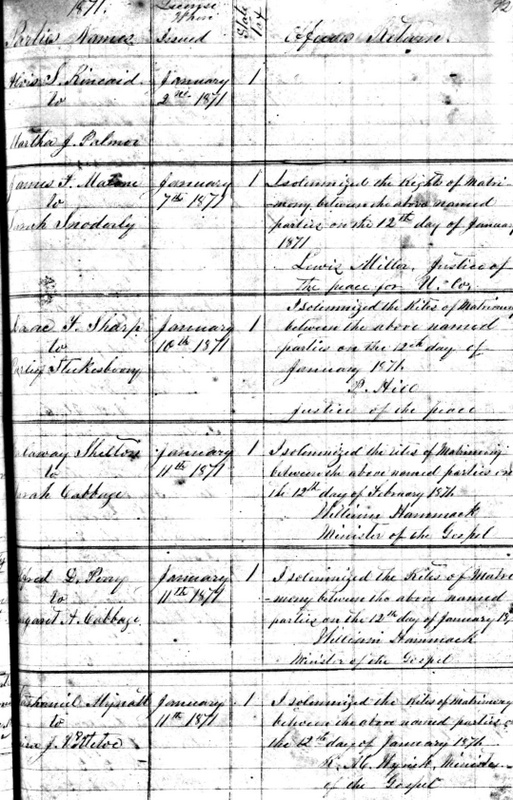 1871.
License
When
Issued
State
Tax
92
Parties Names
Officers Return.
S. Kincaid
to
Martha J. Palmer
January
2nd 1871
1
James F. Malone
to
Sarah Snoderly
January
7th 1871
1
I solemnized the Rights of Matri-
-mony between the above named
parties on the 12th day of January
1871
Lewis Miller, Justice of
the peace for U. Co.
Isaac F. Sharp
to
Stukesberry
January
10th 1871
1
I solemnized the Rites of Matrimony
between the above named
parties on the 12th day of
January 1871.
P. Hill
Justice of the peace
Shelton
to
Sarah Cabbage
January
11th 1871
1
I solemnized the rites of Matrimony
between the above named parties on
the 12th day of February 1871
William Hammack
Minister of the Gospel
Alfred D. Perry
to
Margaret A. Cabbage
January
11th 1871
1
I solemnized the Rites of Matri-
-mony between the above named
parties on the 12th day of January 18
William Hammack
Minister of the Gospel
Nathaniel Mynatt
to
J.
January
11th 1871
1
I solemnized the Rites of Matrimony
between the above named parties on
the 12th day of January 1871.
Minister
of the Gospel